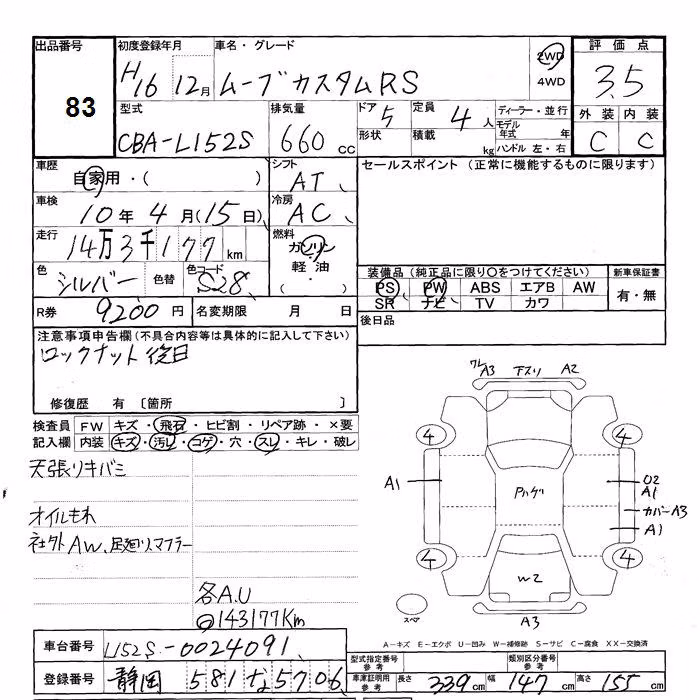 出品番号 初度登録年月 車名・グレード 評価点
83 H16 12月 ムーブカスタムRS 2WD 4WD 3.5
型式 排気量 ドア 定員 ディーラー・並行 外装 内装
CBA-L152S 660cc 5 4人 モデル年式 年 C C
形状 積載 kg ハンドル 左・右
車歴 自家用・( ) シフト AT セールスポイント (正常に機能するものに限ります)
車検 10年4月(15日) 冷房 AC
走行 14万3千177km 燃料 ガソリン
軽油
・( )
色 シルバー 色替 色コード S28 装備品 (純正品に限り○をつけてください) 新車保証書
PS PW ABS エアB AW 有・無
SR ナビ TV カワ
R券 9200円 名変期限 月 日 後日品
注意事項申告欄(不具合内容等は具体的に記入して下さい)
ロックナット後日
修復歴 有 〔箇所 〕
検査員 FW キズ・飛石・ヒビ割・リペア跡・×要
記入欄 内装 キズ・汚レ・コゲ・穴・スレ・キレ・破レ
天張リキバミ
オイルもれ
社外AW、足廻リ、マフラー
各A.U
143177Km
ワレ A3 下スリ A2
4 4
A1 Pハゲ A1
カバーA3
A1
4 4
W2
スペア A3
A−キズ E−エクボ U−凹み W−補修跡 S−サビ C−腐食 XX−交換済
車台番号 L152S-0024091 型式指定番号 参考 類別区分番号 参考
登録番号 静岡 581 な 5706 車庫証明用 参考 長さ 339cm 幅 147cm 高さ 155cm